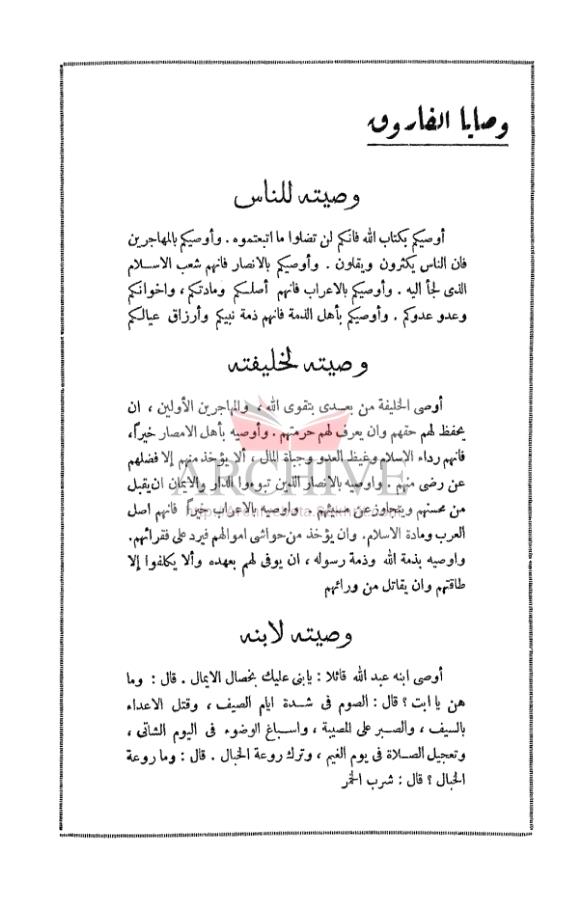 وصايا الفاروق
وصيته للناس
أوصيكم بكتاب الله فانكم لن تضلوا ما اتبعتموه . وأوصيكم بالمهاجرين
فان الناس يكثرون ويقلون . وأوصيكم بالانصار فانهم شعب الاسلام
الذى لجأ اليه . وأوصيكم بالاعراب فانهم أصلكم ومادتكم ، واخوانكم
وعدو عدوكم . وأوصيكم بأهل الذمة فانهم ذمة نبيكم وأرزاق عيالكم
وصيته لخليفته
أوصى الخليفة من بعدى بتقوى الله ، والمهاجرين الأولين ، ان
يحفظ لهم حقهم وان يعرف لهم حرمتهم . وأوصيه بأهل الامصار خيراً،
فانهم رداء الإسلام وغيظ العدو وجباة المال ، ألا يؤخذ منهم إلا فضلهم
عن رضى منهم . واوصيه بالانصار الذين تبوءوا الدار والايمان ان يقبل
من محسنهم ويتجاوز عن مسيئهم . واوصيه بالاعراب خيراً فانهم اصل
العرب ومادة الاسلام. وان يؤخذ من حواشى اموالهم فيرد على فقرائهم.
واوصيه بذمة الله وذمة رسوله ، ان يوفى لهم بعهده وألا يكلفوا إلا
طاقتهم وان يقاتل من ورائهم
ARCHIVE
وصيته لابنه
أوصى ابنه عبد الله قائلا : يابنى عليك بخصال الايمان . قال : وما
هن يا ابت ؟ قال : الصوم فى شدة ايام الصيف ، وقتل الاعداء
بالسيف ، والصبر على المصيبة ، واسباغ الوضوء فى اليوم الشاتى ،
وتعجيل الصلاة فى يوم الغيم ، وترك روعة الخبال . قال : وما روعة
الخبال ؟ قال : شرب الخمر